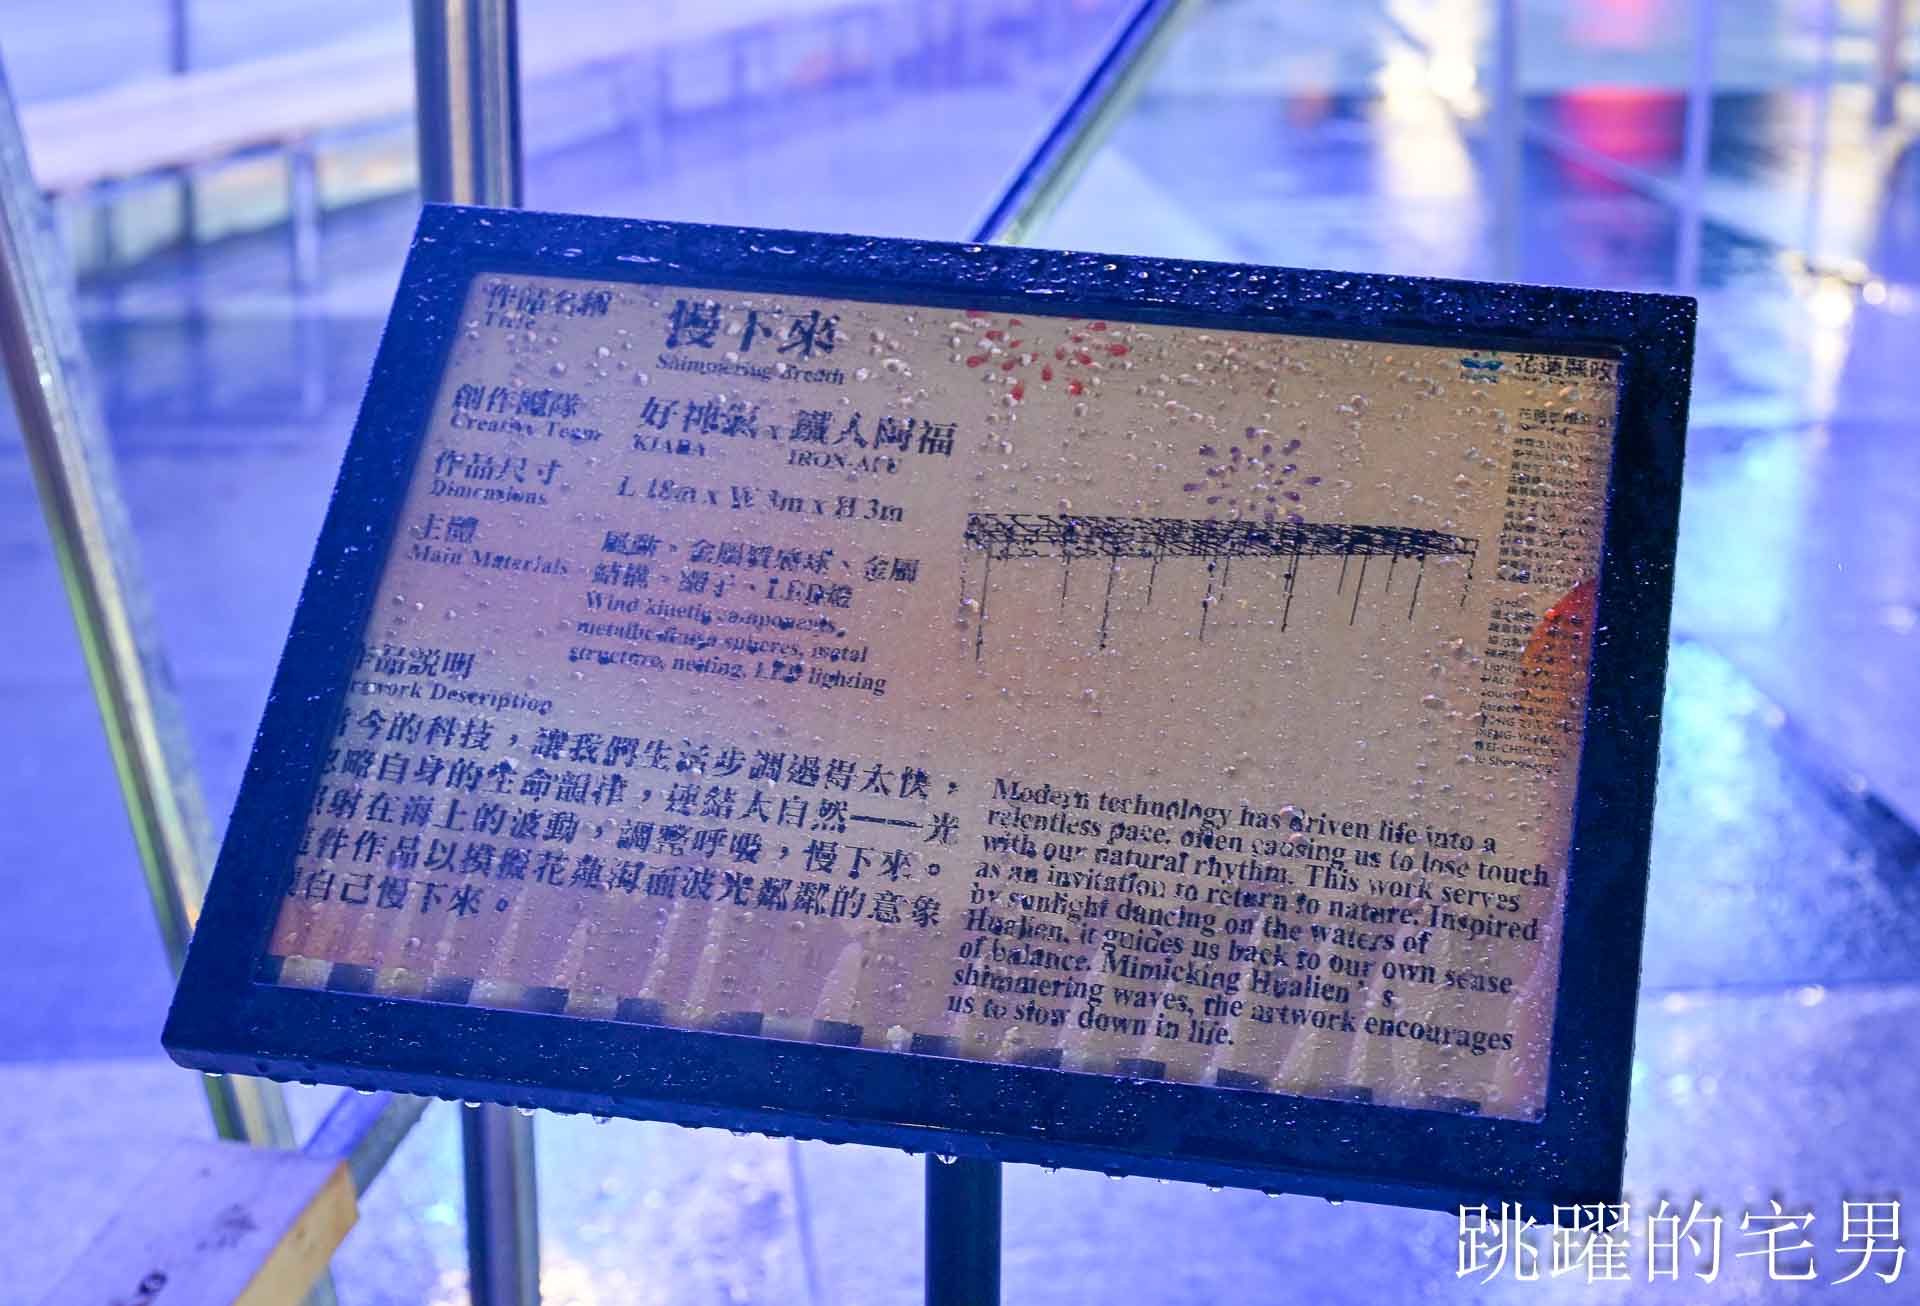 作品名稱
Title
慢下來
Shimmering Breath
花蓮縣政
創作團隊
Creative Team
好神氣 x 鐵人阿福
KIARA IRON-AFU
作品尺寸
Dimensions
L 18m x W 3m x H 3m
主體
Main Materials
風動、金屬質感球、金屬
結構、網子、LED燈
Wind kinetic components,
metallic-finish spheres, metal
structure, netting, LED lighting
作品說明
Artwork Description
今的科技，讓我們生活步調過得太快，
忽略自身的生命韻律，連結大自然——光
照射在海上的波動，調整呼吸，慢下來。
這件作品以模擬花蓮海面波光粼粼的意象
自己慢下來。
Modern technology has driven life into a
relentless pace, often causing us to lose touch
with our natural rhythm. This work serves
as an invitation to return to nature. Inspired
by sunlight dancing on the waters of
Hualien, it guides us back to our own sense
of balance. Mimicking Hualien’s
shimmering waves, the artwork encourages
us to slow down in life.
跳躍的宅男